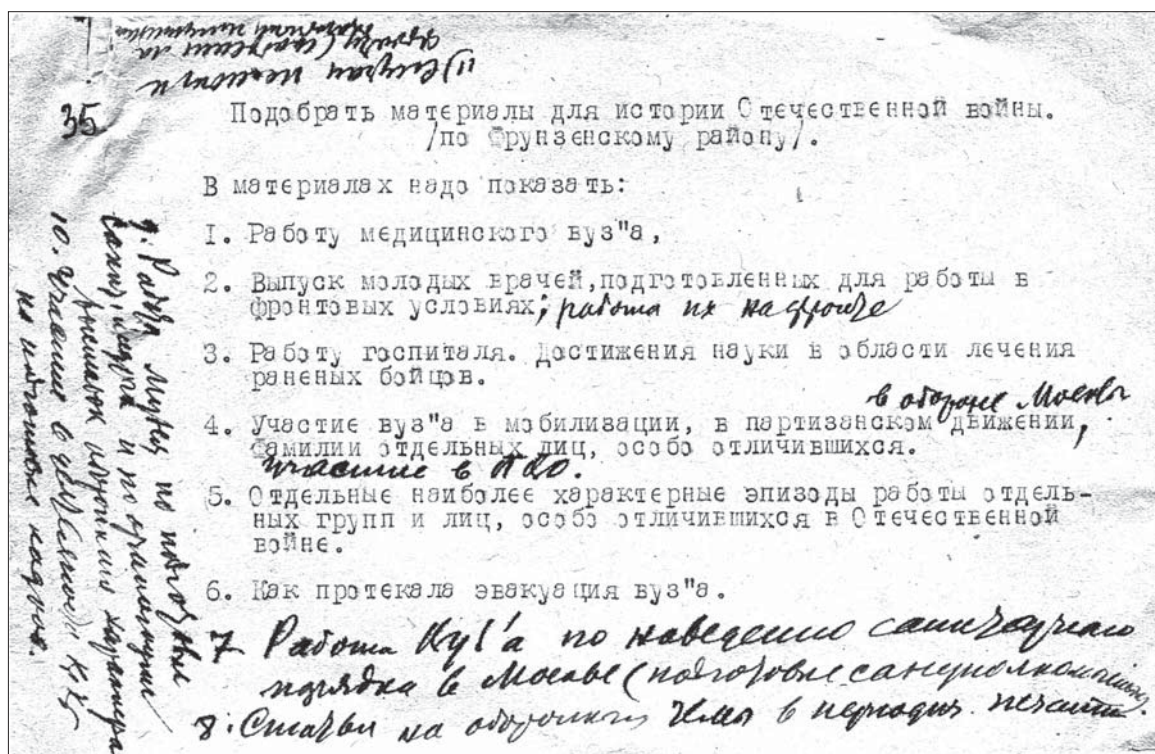 35
Подобрать материалы для истории Отечественной войны.
/по Фрунзенскому району/.
В материалах надо показать:
I. Работу медицинского вуз"а,
2. Выпуск молодых врачей,подготовленных для работы в
фронтовых условиях; работа их на фронте
3. Работу госпиталя. Достижения науки в области лечения
раненых бойцов.
в обороне Москвы
4. Участие вуз"а в мобилизации, в партизанском движении,
фамилии отдельных лиц, особо отличившихся.
участие в ПВО.
5. Отдельные наиболее характерные эпизоды работы отдель-
ных групп и лиц, особо отличившихся в Отечественной
войне.
6. Как протекала эвакуация вуз"а.
7 Работа по наведению санитарного
порядка в Москве (подготовка
8. Статьи на оборонные темы в периодич. печати.
9. Работа музея по
и по организации
выставок характера
10. Участие в
кадров.
11) помощи